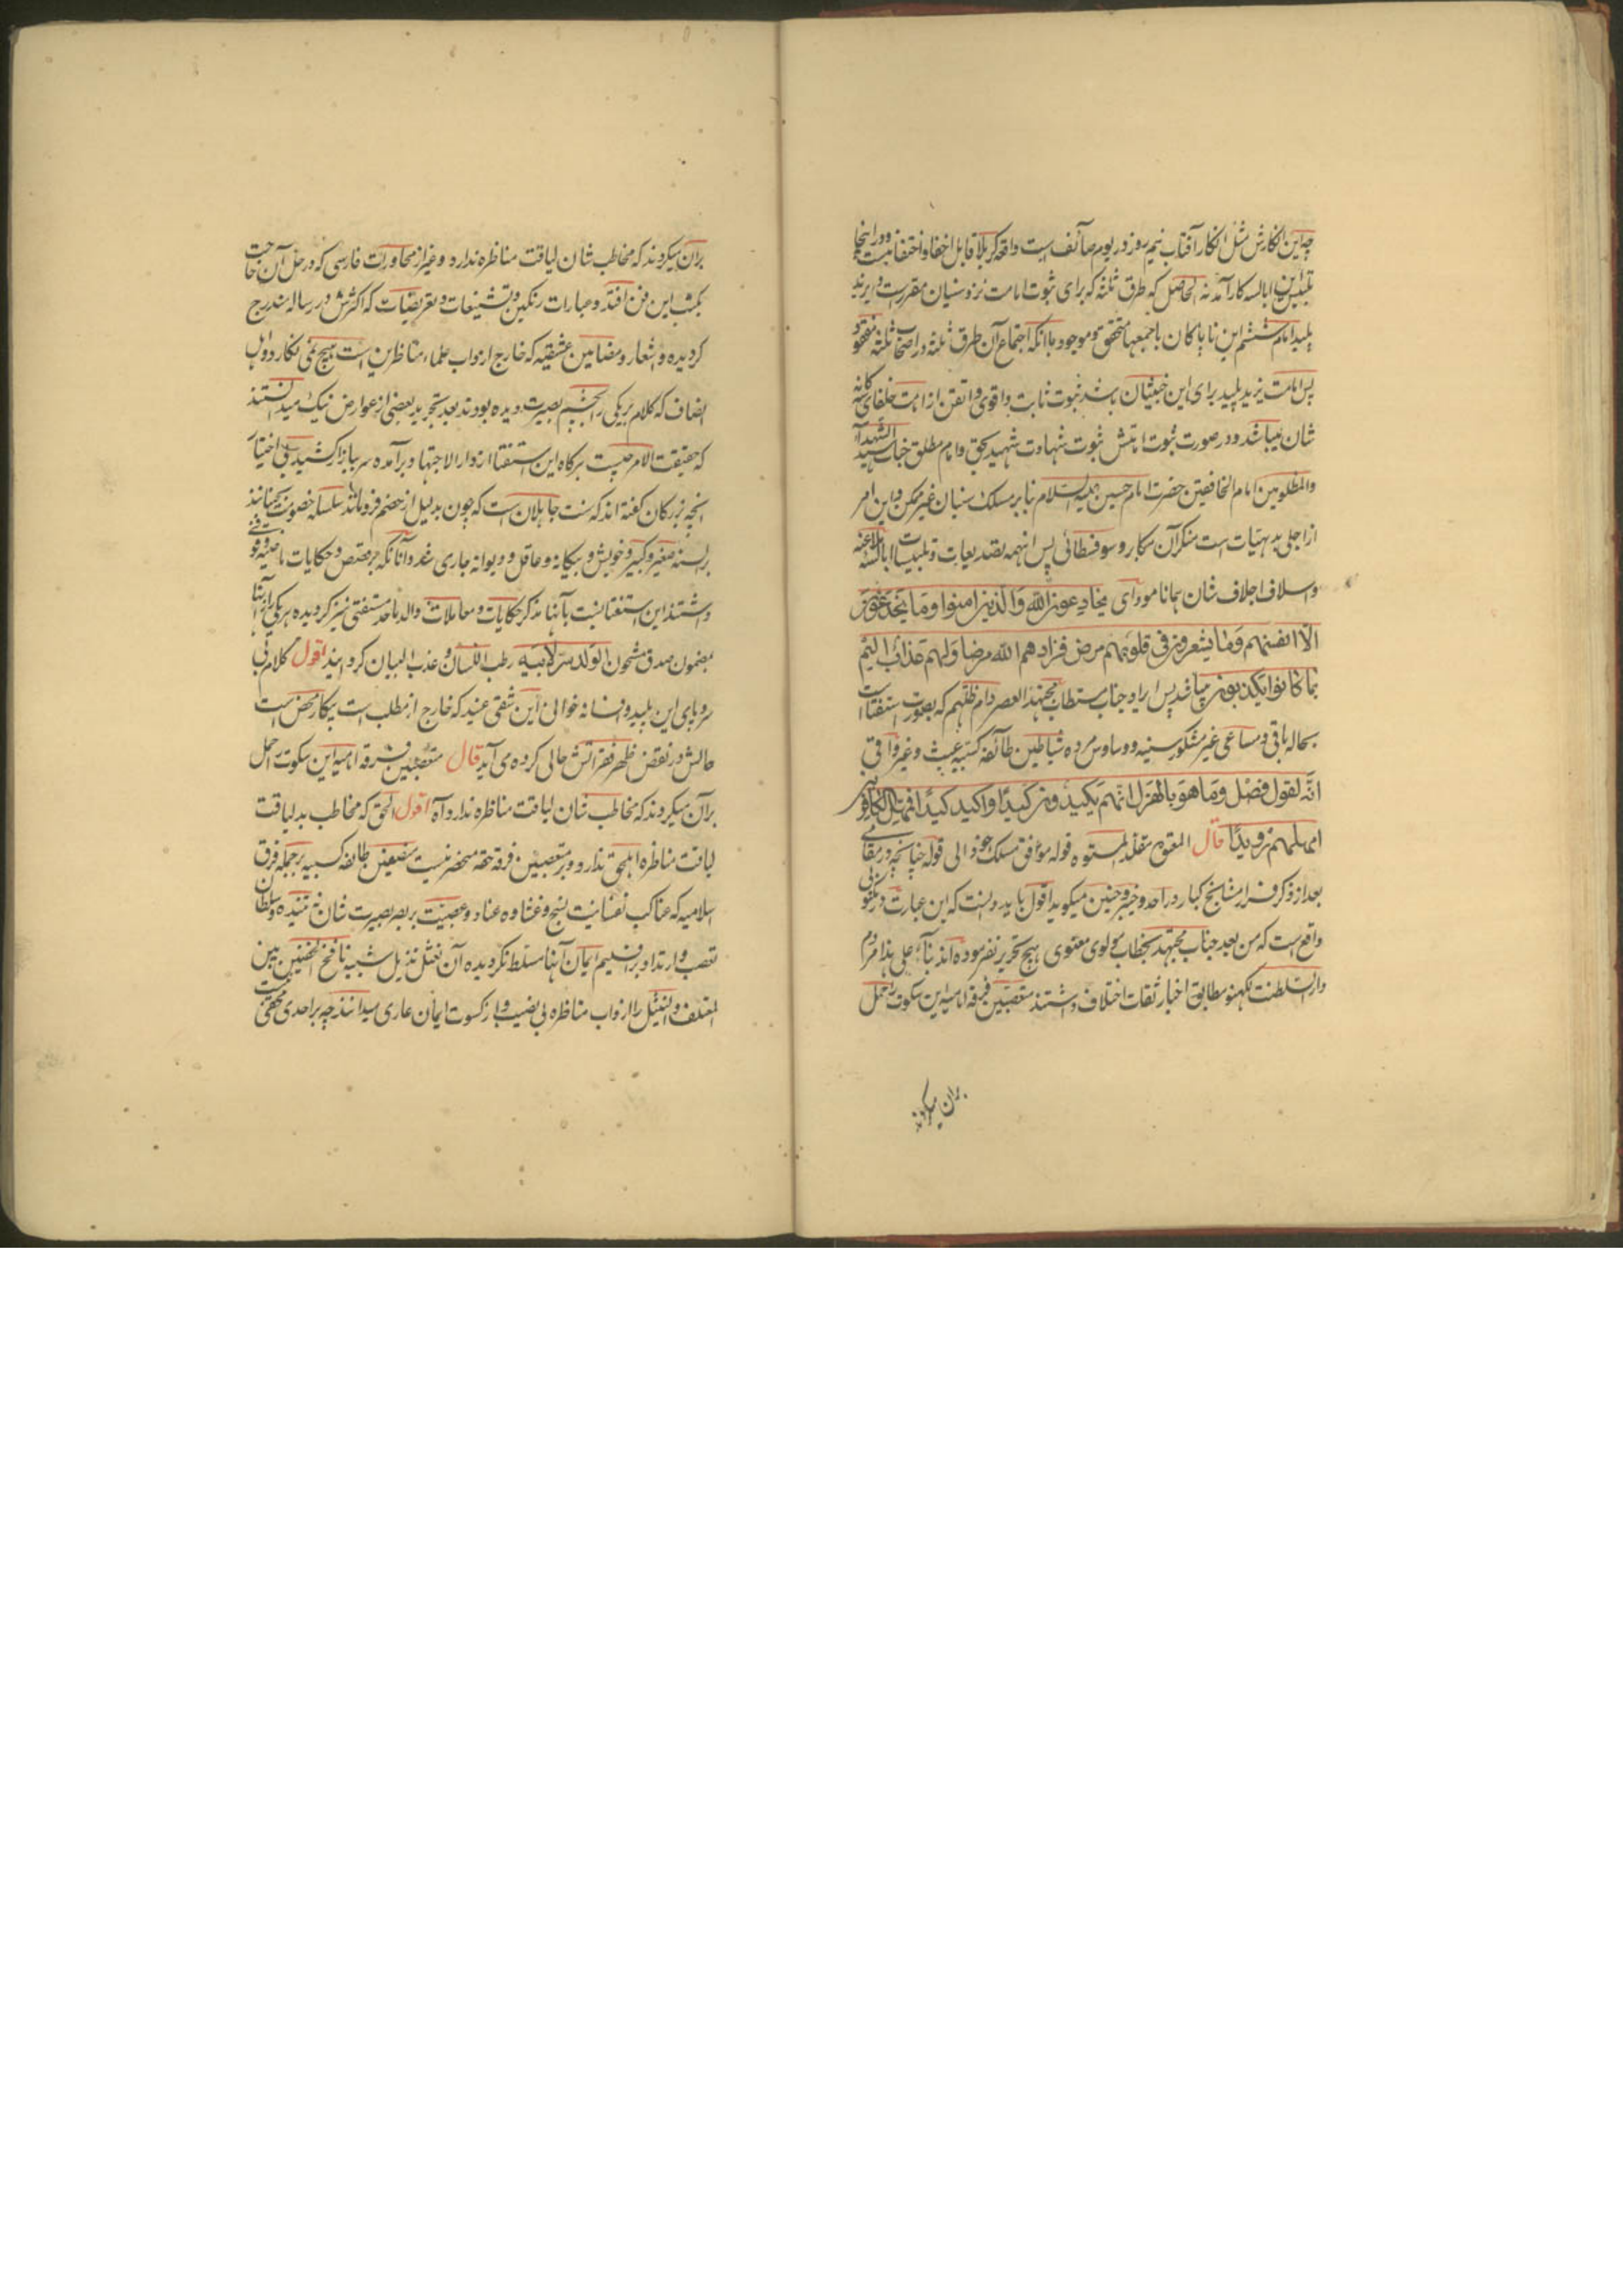 چه این انکارش مثل انکار آفتاب نیمروز در یوم صائف ست واقعه کربلا قابل اخفا و اختفا نیست و در اینجا
تلبیس ابالسه کار آمد نه الحاصل که طرق ثلثه که برای ثبوت امامت نزد سنیان مقررست در یزید
پلید امام ششم این ناپاکان باجمعها متحقق و موجود با آنکه اجتماع آن طرق ثلثه در اصحاب ثلثه مفقود
پس امامت یزید پلید برای این خبیثان باشد ثبوت ثابت و اقوی و اتقن از امامت خلفای ثلثه
شان میباشد و در صورت ثبوت امامتش ثبوت شهادت شهید بحق و امام مطلق جناب سید الشهدا
والمظلومین امام الخافقین حضرت امام حسین علیه السلام بنا بر مسلک سنیان غیر ممکن و این امر
از اجلی بدیهیات است منکر آن مکابر و سوفسطائی پس اینهمه تصدیعات و تلبیسات ابالسه ملاعنه
و اسلاف اجلاف شان همانا مودای یخادعون الله والذین امنوا وما یخدعون
الا انفسهم وما یشعرون فی قلوبهم مرض فزادهم الله مرضا ولهم عذاب الیم
بما کانوا یکذبون میباشد پس ایراد جناب مستطاب مجتهد العصر دام ظلهم که بصورت استفتا است
بحاله باقی و مساعی غیر مشکور سنیه و وساوس مرده شیاطین طائفه کسبیه عبث و غیر واقی
انه لقول فصل وما هو بالهزل انهم یکیدون کیدا واکید کیدا فمهل الکافرین
امهلهم رویدا قال المعتوه مقلد المستوه قوله موافق مسلک خود الی قوله چنانچه در مقامی
بعد از ذکر فرار مشایخ کبار در احد و خیبر و حنین میگوید اقول باید دانست که این عبارت در مکتوبی
واقع ست که من بعد جناب مجتهد بخطاب مولوی معنوی هیچ تحریر نفرموده اند بناء علی هذا مردم
دار السلطنت لکهنو مطابق اخبار ثقات اختلاف داشتند متعصبین فرقه امامیه این سکوت را حمل
بران میکردند
بران میکردند که مخاطب شان لیاقت مناظره ندارد و غیر از محاورات فارسی که در حل آن حاجت
بکتب این فن افتد و عبارات رنگین و تشنیعات و تعریضات که اکثرش در رساله مندرج
گردیده و اشعار و مضامین عشقیه که خارج از داب علماء مناظرین است هیچ نمی نگارد و اهل
انصاف که کلام هر یکی را بچشم بصیرت دیده بودند بعد تجرید بعضی از عوارض نیک میدانستند
که حقیقت الامر چیست هرگاه این استفتا از دار الاجتهاد برآمده سر ببازار کشید بی اختیار
آنچه بزرگان گفته اند که سنت جاهلان است که چون بدلیل از خصم فرومانند سلسله خصومت بجنبانند
بر السنه صغیر و کبیر و خویش و بیگانه و عاقل و دیوانه جاری شد و آنانکه بر قصص و حکایات ماضیه وقوف
داشتند این استفتا نسبت بآنها مذکر حکایات و معاملات والد ماجد مستفتی نیز گردیده هر یکی را
بمضمون صدق مشحون الولد سر لابیه رطب اللسان و عذب البیان گردانید اقول کلام بی
سر و پای این پلید و افسانه خوانی این شقی عنید که خارج از مطلب است بیکار محض است
حالش در نقض ظهر فقراتش حالی کرده می آید قال متعصبین فرقه امامیه این سکوت را حمل
بران میکردند که مخاطب شان لیاقت مناظره ندارد آه اقول الحق که مخاطب بد لیاقت
لیاقت مناظره اهل حق ندارد و بر متعصبین فرقه حقه منحصر نیست منصفین طائفه کسبیه بر جمله فرق
اسلامیه که عناکب نفسانیت نسج و غشاوه عناد و عصبیت بر بصر بصیرت شان نه تنیده و سلطان
تعصب و ارتداد بر اقلیم ایمان آنها مسلط نگردیده آن نعثل تذییل شبیه نافخ الحضنین بین
المعتلف والنثیل را از داب مناظره بی نصیب و از کسوت ایمان عاری میدانند چه بر احدی مخفی نیست